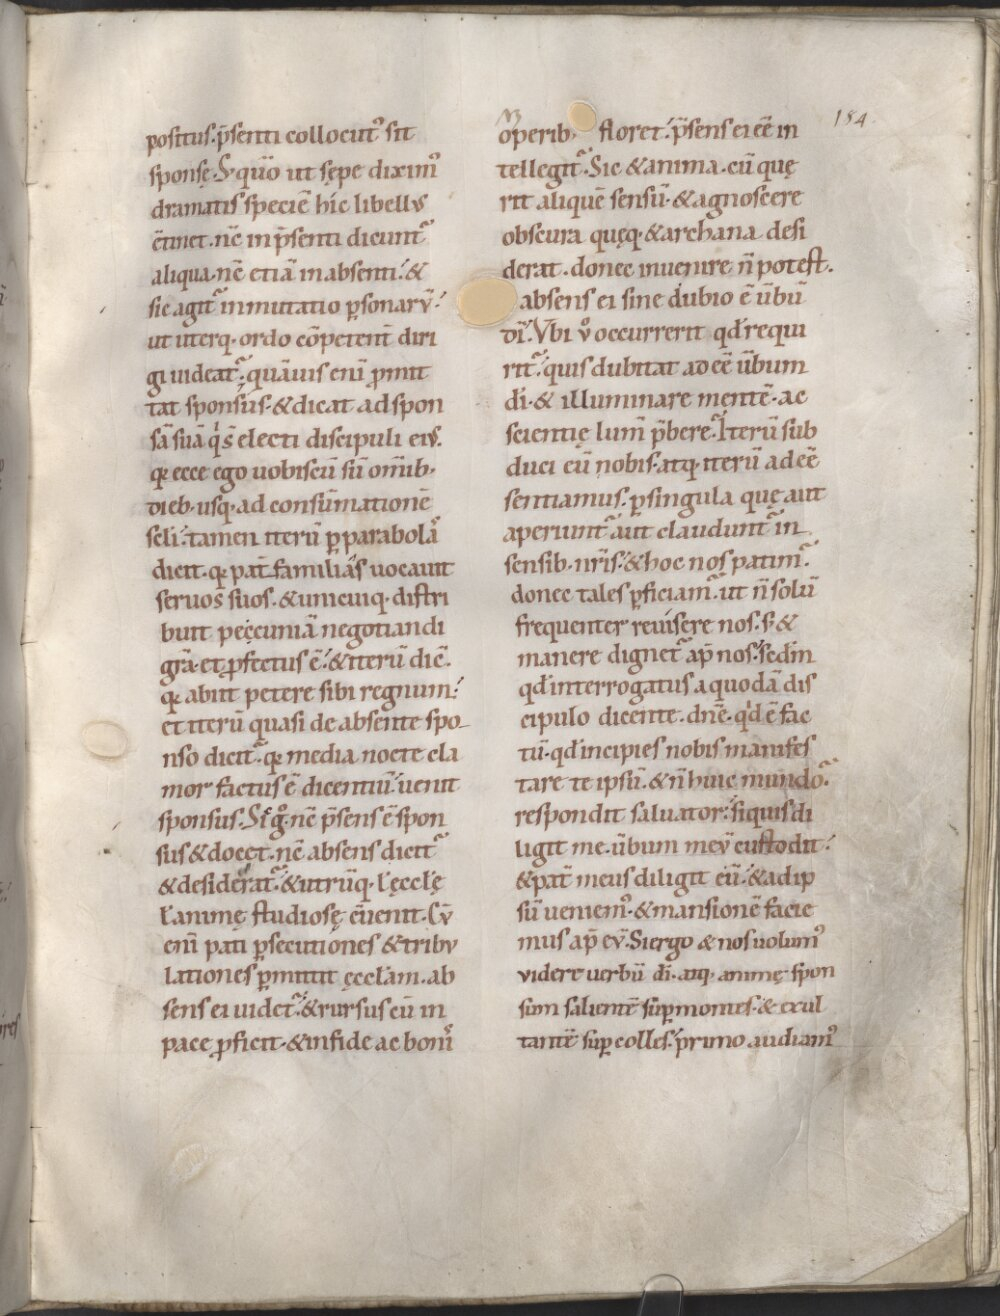 positus. p̄senti collocut᷒ sit
sponsę. S; quō ut sępe dixim᷒
dramatis speciē hic libellus
c̄tinet. nc̄ in p̄senti dicunt᷑
aliqua. nc̄ etiā in absenti. &
sic agit᷑ inmutatio ꝑsonarū.
ut uterq; ordo cōpetent̄ diri
gi uideat᷑. quāuis enī ꝓmit
tat sponsus. & dicat ad spon
sā suā q̇ s̄ electi discipuli eius.
qꝛ ecce ego uobiscū sū om̄ib;
dieb; usq; ad consūmationē
sc̄li. tamen iterū ꝑ parabolā
dicit. qꝛ pat̄ familias uocauit
seruos suos. & unicuiq; distri
buit peccuniā negotiandi
gr̄a. et ꝓfectus ē. & iterū dic̄.
qꝛ abiit petere sibi regnum.
et iterū quasi de absente spo
nso dicit᷑. qꝛ media nocte cla
mor factus ē dicentiū. uenit
sponsus. Sic g̊ nc̄ p̄sens ē spon
sus & docet. nc̄ absens dicit᷑
& desiderat᷑. & utrūq; ł ęcclę
ł animę studiosę c̄uenit. Cū
enī pati ꝑsecutiones & tribu
lationes ꝑmittit ęccłam. ab
sens ei uidet᷑. & rursus cū in
pace ꝓficit. & in fide ac boni᷒
operib; floret. p̄sens ei eē in
tellegit᷑. Sic & anima. cū quę
rit aliquē sensū. & agnoscere
obscura quęq; & archana desi
derat. donec inuenire n̄ potest.
absens ei sine dubio ē ūbū
dī. Vbi ů occurrerit qd̄ requi
rit᷑. quis dubitat adeē ūbum
dī. & illuminare mentē. ac
scientię lum̄ p̄bere. Iterū sub
duci eū nobis. atq; iterū adeē
sentiamus. ꝑ singula quę aut
aperiunt᷑ aut claudunt᷑ in
sensib; nr̄is. & hoc nos patim᷑.
donec tales ꝑficiam᷑. ut n̄ solū
frequenter reuisere nos. s; &
manere dignet᷑ ap̄ nos. sedm̄
qd̄ interrogatus a quodā dis
cipulo dicente. dnē. q̇d ē fac
tū. qd̄ incipies nobis manifes
tare te ipsū. & n̄ huic mundo.
respondit saluator. siquis di
ligit me. ūbum meū custodit.
& pat̄ meus diligit eū. & ad ip
sū ueniem᷒. & mansionē facie
mus ap̄ eū. Si ergo & nos uolum᷒
videre uerbū dī. atq; animę spon
sum salientē suꝑ montes. & exul
tantē suꝑ colles. primo audiam᷒
184.